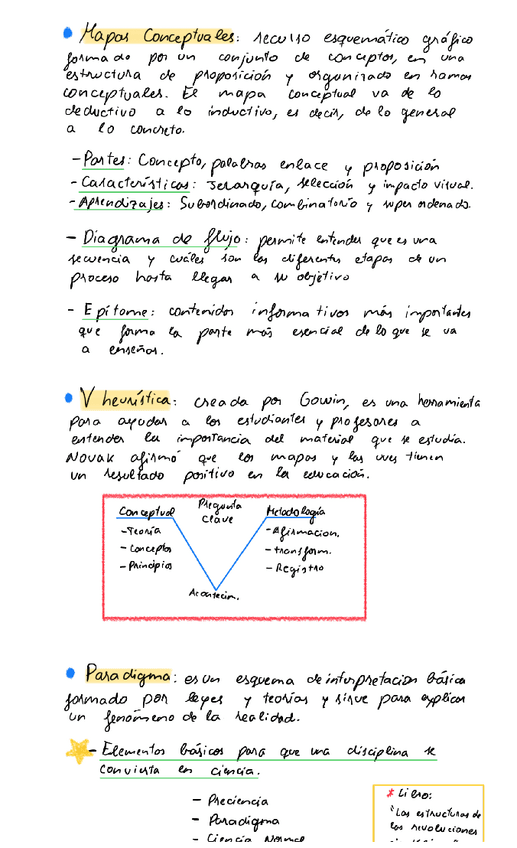 Mapas Conceptuales: recurso esquemático gráfico
formado por un conjunto de conceptos, en una
estructura de proposición y organizado en ramas
conceptuales. El mapa conceptual va de lo
deductivo a lo inductivo, es decir, de lo general
a lo concreto.
- Partes: Concepto, palabras enlace y proposición
- Características: Jerarquía, selección y impacto visual.
- Aprendizajes: Subordinado, combinatorio y super ordenado.
- Diagrama de flujo: permite entender que es una
secuencia y cuáles son las diferentes etapas de un
proceso hasta llegar a su objetivo
- Epítome: contenidos informativos más importantes
que forma la parte más esencial de lo que se va
a enseñar.
V heurística: creada por Gowin, es una herramienta
para ayudar a los estudiantes y profesores a
entender la importancia del material que se estudia.
Novak afirmó que los mapas y las uves tienen
un resultado positivo en la educación.
Conceptual Pregunta Metodología
Clave
- Teoría - Afirmacion.
- Conceptos - transform.
- Principios - Registro
Acontecim.
Paradigma: es un esquema de interpretación básica
formado por leyes y teorías y sirve para explicar
un fenómeno de la realidad.
- Elementos básicos para que una disciplina se
convierta en ciencia.
- Preciencia
- Paradigma
- Ciencia Normal
* Libro:
"Las estructuras de
las revoluciones